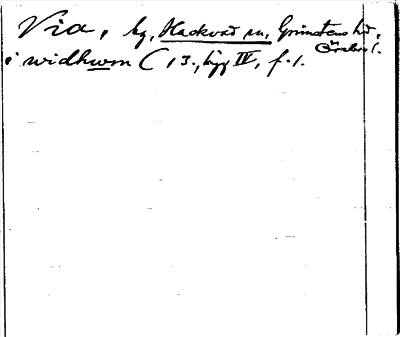 Via, by, Hackvad sn, Grimstens hd,
Örebro l.
i widhwm ( 13., hjg IV, f. 1.